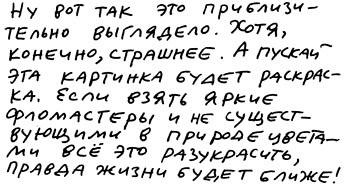 Ну вот так это приблизи-
тельно выглядело. Хотя,
конечно, страшнее. А пускай
эта картинка будет раскрас-
ка. Если взять яркие
фломастеры и не сущест-
вующими в природе цвета-
ми всё это разукрасить,
правда жизни будет ближе!